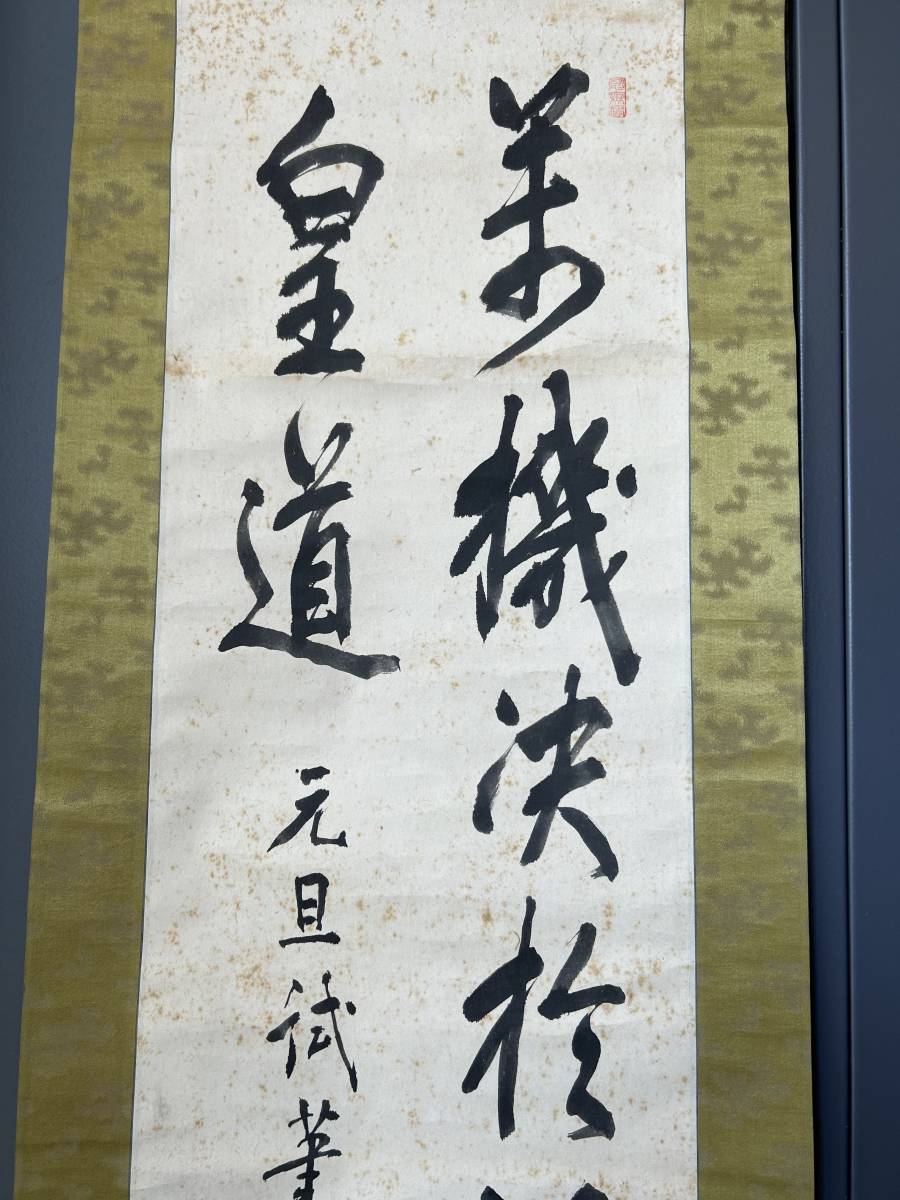 萬機決於
皇道
元旦試筆